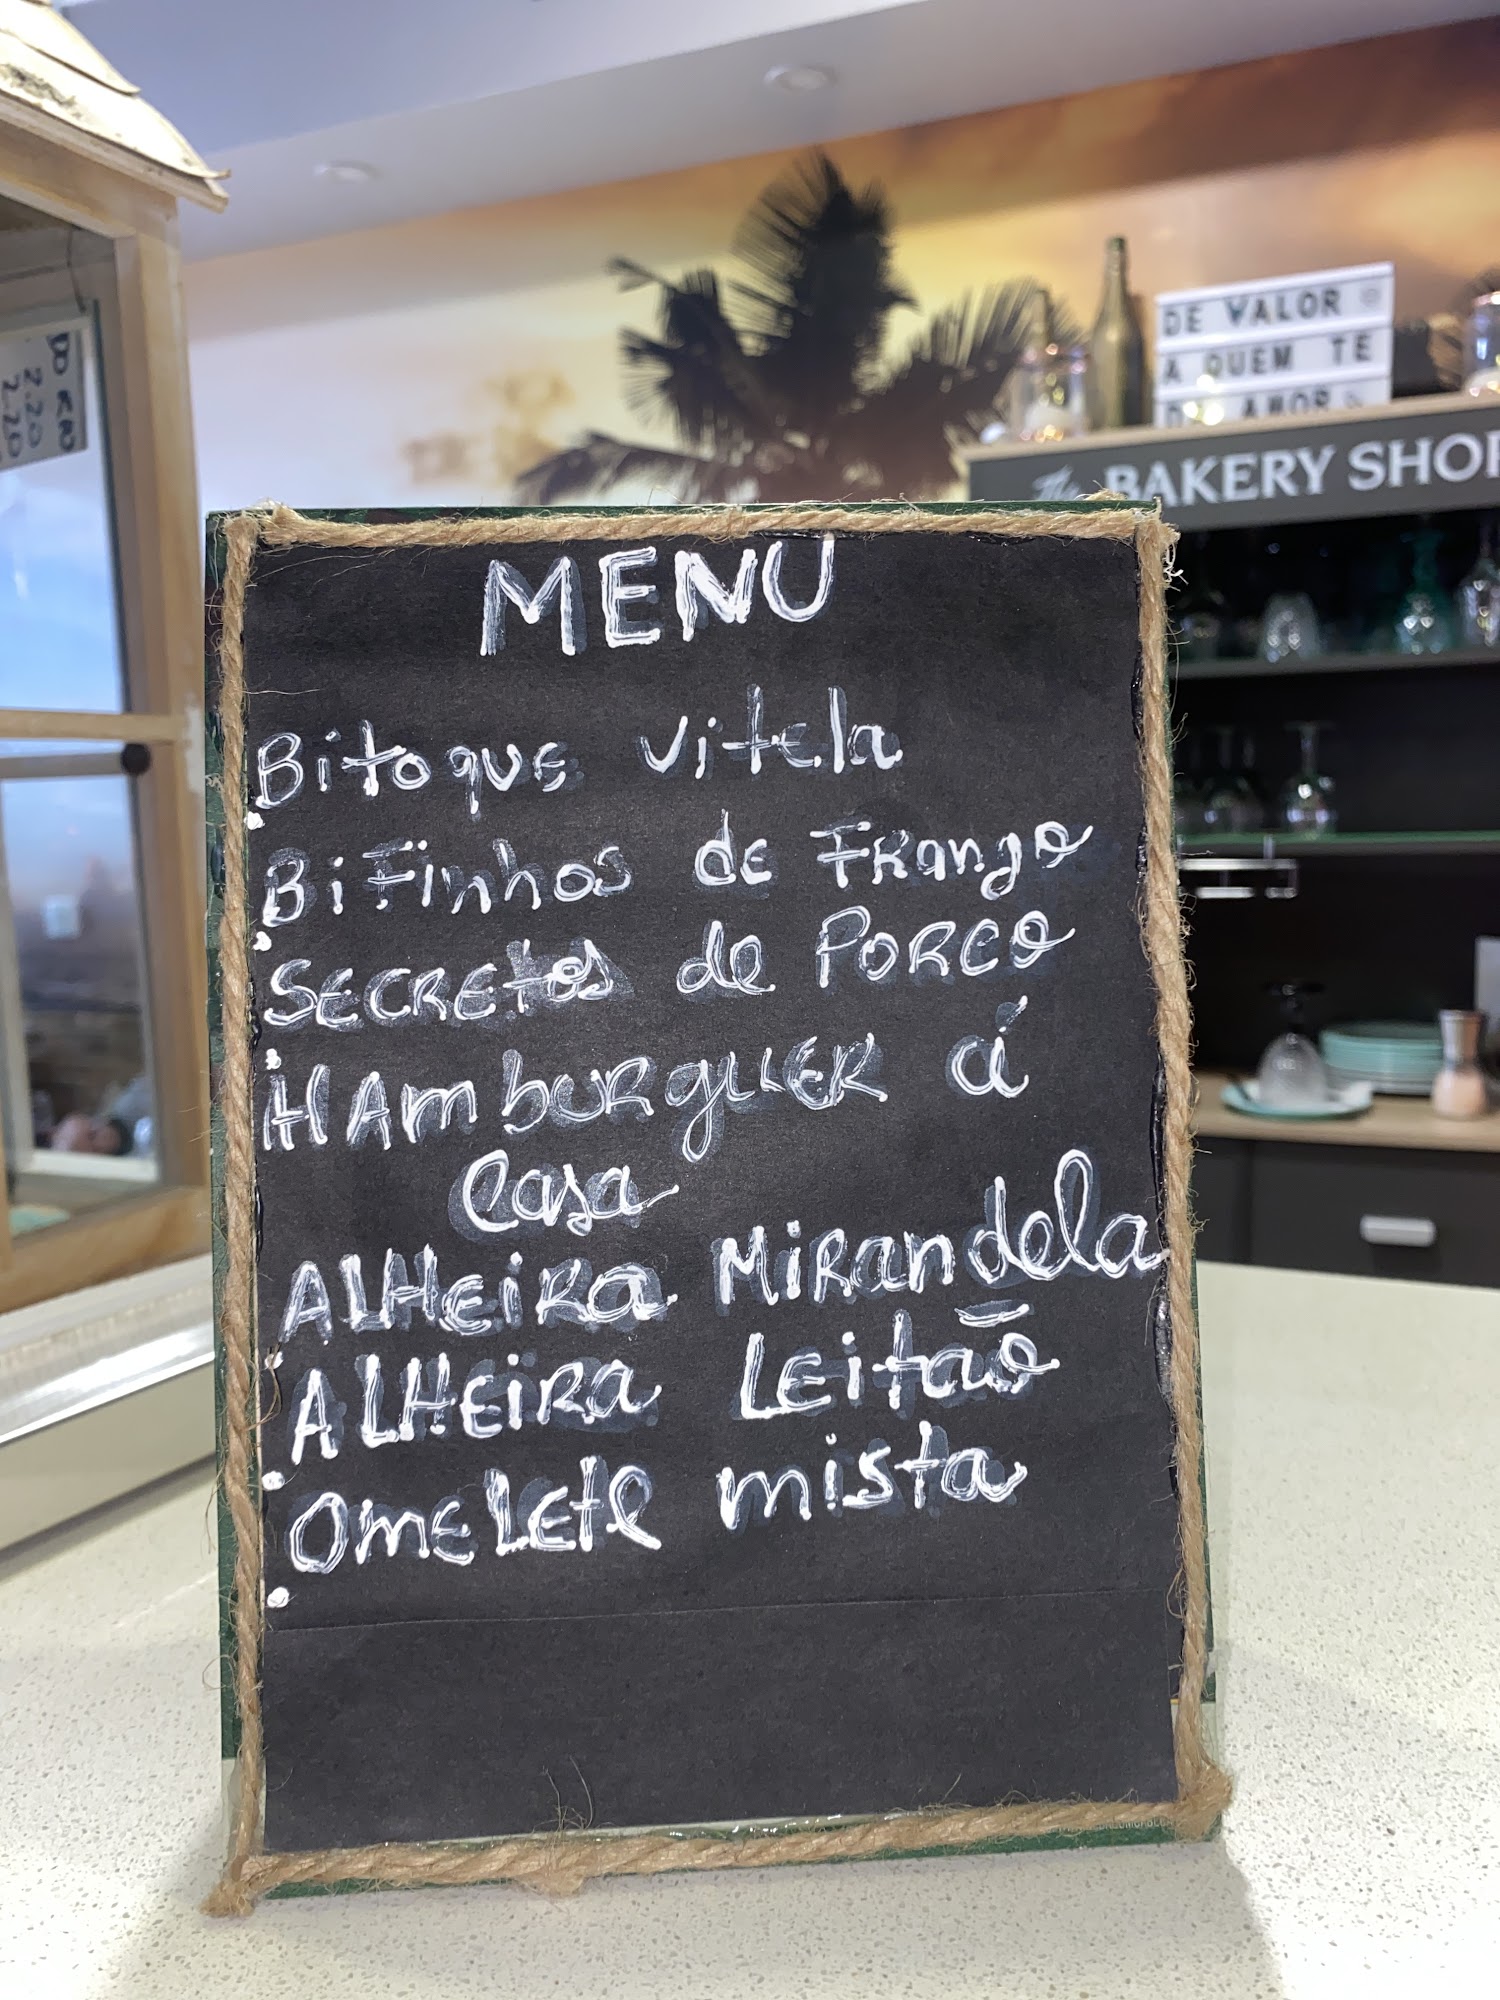 DE VALOR
A QUEM TE
AMOR
The BAKERY SHOP
2.20
2.20
MENU
Bitoque vitela
Bifinhos de Frango
Secretos de Porco
Hamburguer á
Casa
ALHEIRA MIRandela
ALHEIRA LEitão
OmeLEte mista